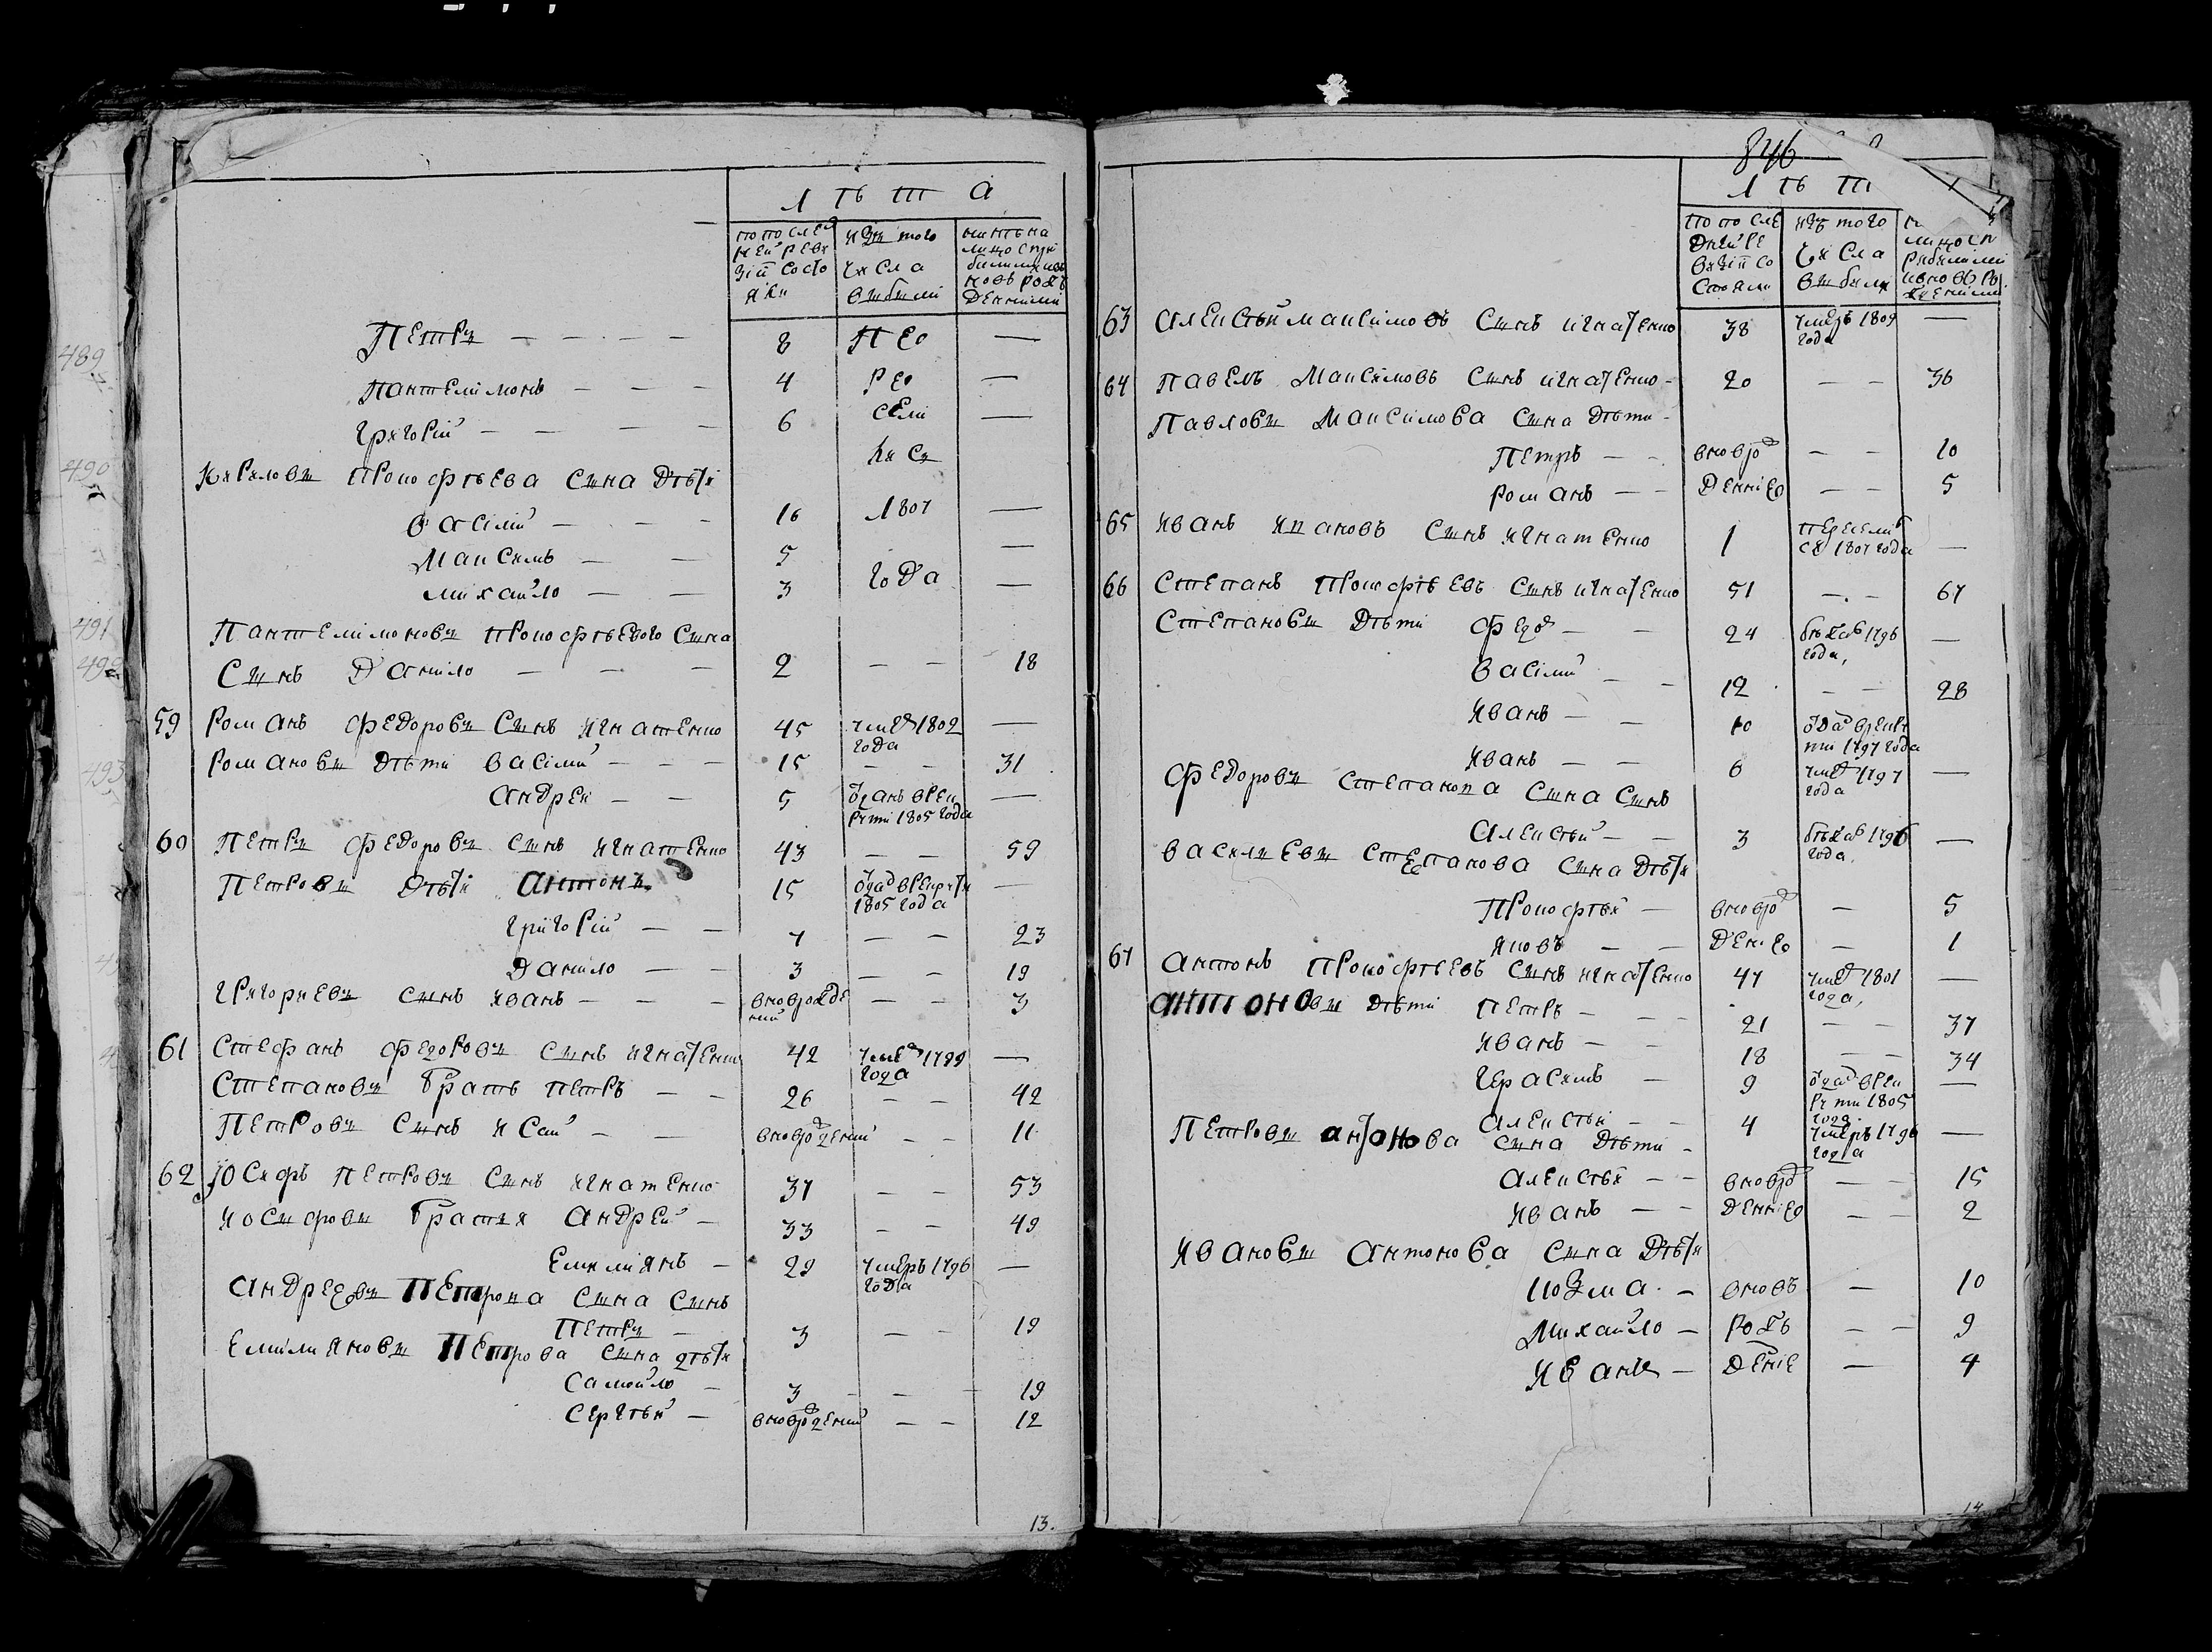 489
490
491
492
493
Лѣта
по послед
ней реви
зіи состо
яли
изъ того
числа
выбыли
нинѣ на
лицо с при
былими и в
новь рожъ
деннiми
Петръ — — — — 8 Пе —
Пантелiмонъ — — — 4 ре —
Григорiй — — — — 6 сели —
ли съ
Кириловы Прокофьева сына дѣти
Васiлiй — — — 16 1807 —
Максимъ — — 5 —
Михайло — — 3 года —
Пантелiмоновъ Прокофьевого сына
сынъ Данило — — — 2 — — 18
59 Романъ Федоровъ сынъ Игнатенко 45 умер 1802 года —
Романовы дѣти Васiлiй — — — 15 — — 31
Андрей — — 5 отданъ в рек
рути 1805 года —
60 Петръ Федоровъ сынъ Игнатенко 43 — — 59
Петровы дѣти Антонъ 15 отдав рекрути
1805 года —
Григорiй — — 7 — — 23
Данило — — 3 — — 19
Григориевъ сынъ Иванъ — — — вноворожде
ний — — 3
61 Стефанъ Федоровъ сынъ Игнатенко 42 умер 1799
года —
Степановъ братъ Петръ — — 26 — — 42
Петровъ сынъ Исай — — вноворождений — — 11
62 Юсифъ Петровъ сынъ Игнатенко 37 — — 53
Иосифовы братия Андрей — 33 — — 49
Емилиянъ — 29 умеръ 1796
года —
Андреевъ Петрова сына сынъ
Петръ — 3 — — 19
Емилияновы Петрова сына дѣти
Самойло — 3 — — 19
Сергѣй — вноворожденний — — 12
13.
846
Лѣт
по после
дней ре
визiи со
стояли
изъ того
числа
выбили
лицо с п
рибилими
и вновь ро
жденими
63 Алексѣй Максимовъ сынъ Игнатенко 38 умеръ 1809
года —
64 Павелъ Максимовъ сынъ Игнатенко — 20 — — 36
Павловы Максимова сына дѣти —
Петръ — — вноврод — — 10
Романъ — — деннiе — — 5
65 Иванъ Ивановъ сынъ Игнатенко 1 переселил
ся 1807 года —
66 Степанъ Прокофьевъ сынъ Игнатенко 51 — — 67
Степановы дѣти Федор — — 24 бѣжав 1796
года, —
Васiлiй — — 12 — — 28
Иванъ — — 10 отдав рекру
ти 1797 года
Иванъ — — 6 умер 1797
года —
Федоровъ Степанова сына сынъ
Алексѣй — — 3 бѣжав 1796
года. —
Василиевы Степанова сына дѣти
Прокофѣй — вноврод — 5
Яковъ — — денiе — 1
67 Антонъ Прокофьевъ сынъ Игнатенко 47 умер 1801
года, —
Антоновы дѣти Петръ — — — 21 — — 37
Иванъ — — 18 — — 34
Герасимъ — 9 отдав рек
рути 1805
года. —
Алексѣй — — 4 умеръ 1796
года —
Петровы Антонова сына дѣти —
Алексѣй — — вноврод — — 15
Иванъ — — деннiе — — 2
Ивановы Антонова сына дѣти
Козма — вновъ — 10
Михайло — рожъ — — 9
Иванъ — денiе — 4
14